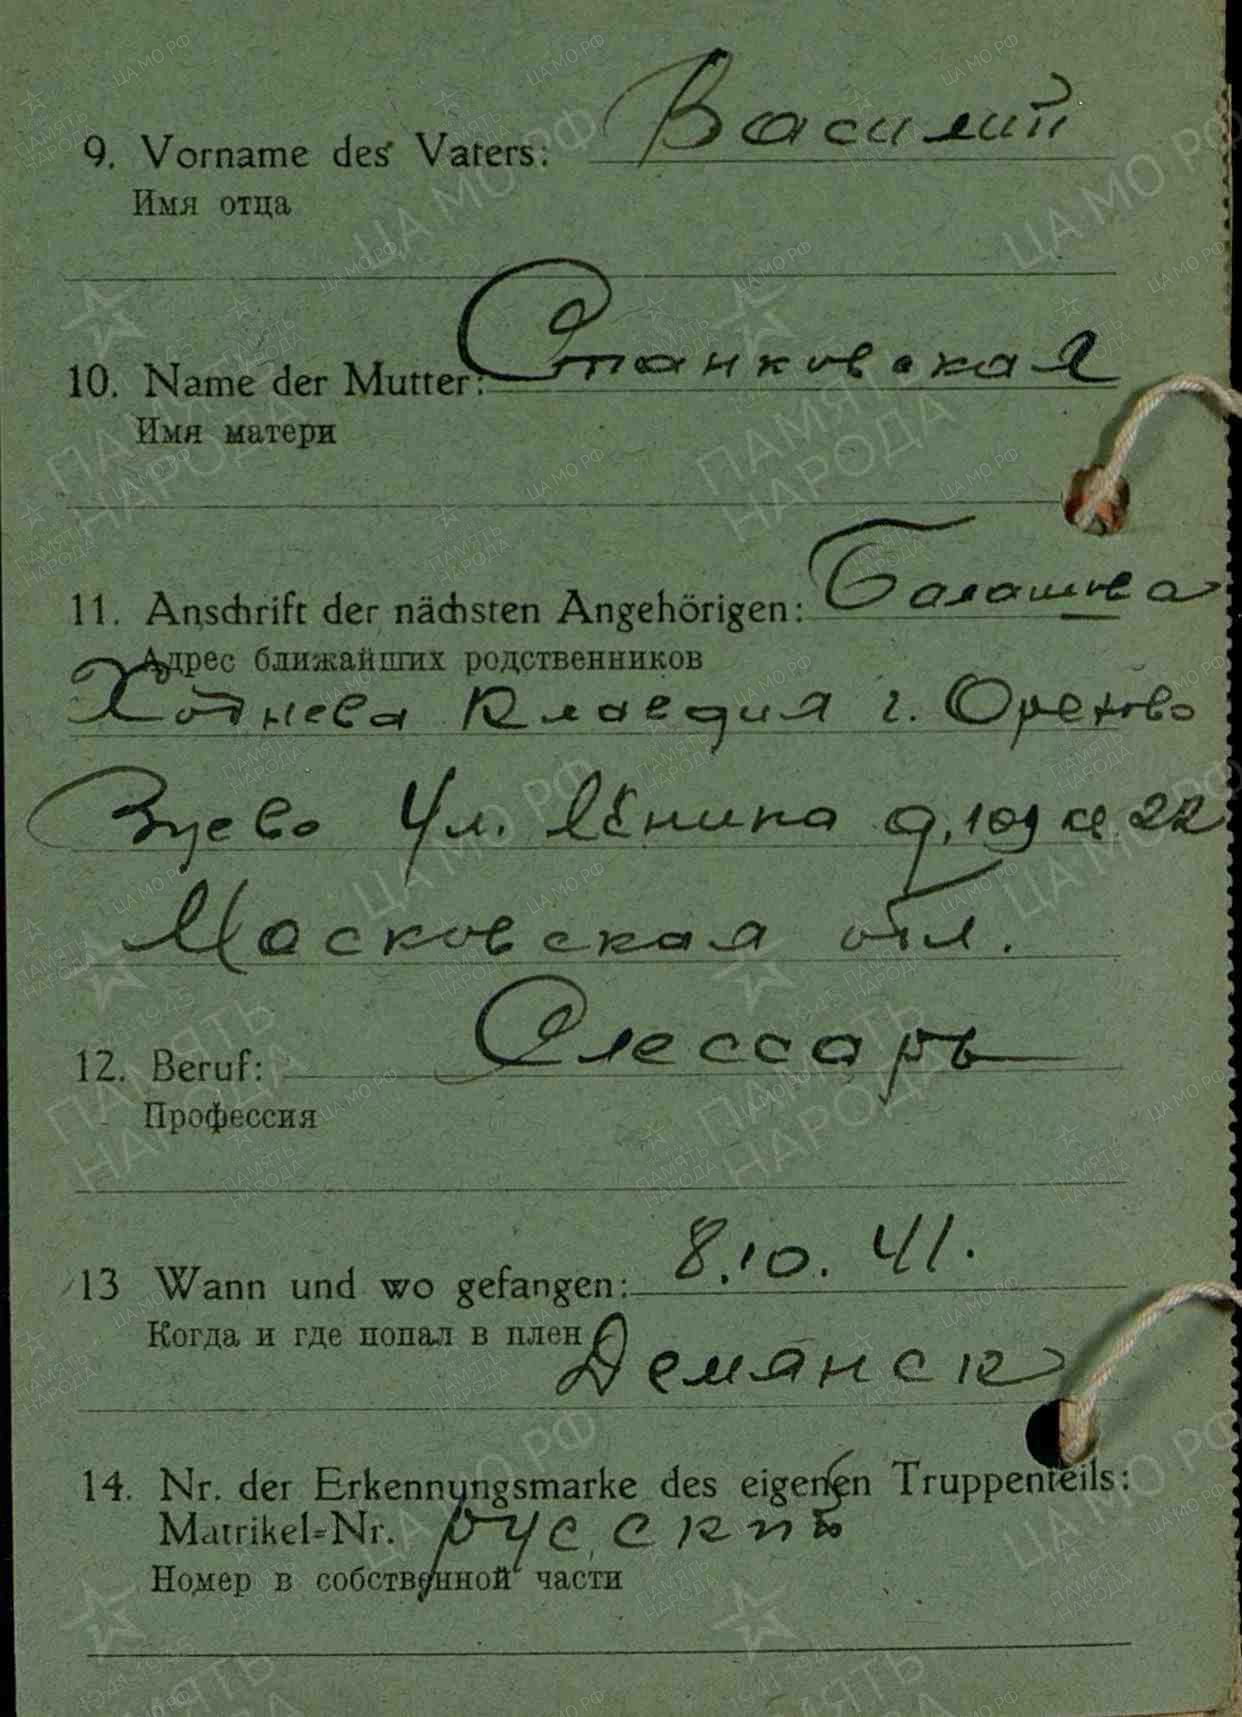 9. Vorname des Vaters: Василий
Имя отца
10. Name der Mutter: Станковская
Имя матери
11. Anschrift der nächsten Angehörigen: Балашова
Адрес ближайших родственников
Клавдия г. Орехово
Зуево Ул. Ленина д. 109 кв 22
Московская обл.
12. Beruf: Слессарь
Профессия
13 Wann und wo gefangen: 8.10.41.
Когда и где попал в плен
Демянск
14. Nr. der Erkennungsmarke des eigenen Truppenteils:
Matrikel=Nr. русский
Номер в собственной части